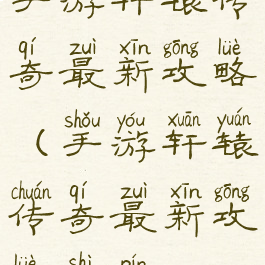 手游轩辕传
qí zuì xīn gōng lüè
奇最新攻略
shǒu yóu xuān yuán
(手游轩辕
chuán qí zuì xīn gōng
传奇最新攻
lüè shì pín